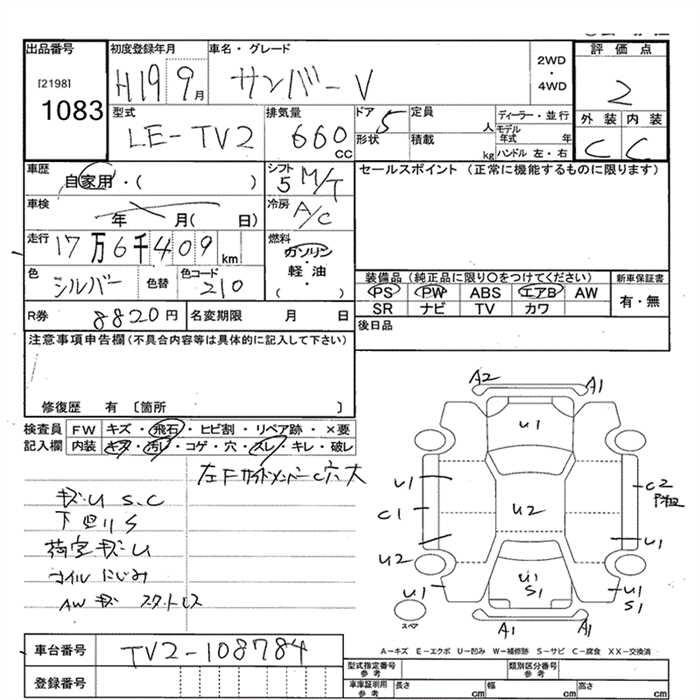 出品番号 初度登録年月 車名・グレード 評価点
[2198] H19 9月 サンバーV 2WD・4WD 2
1083 型式 排気量 ドア 定員 ディーラー・並行 外装 内装
LE-TV2 660CC 5 人 モデル年式 年 C C
形状 積載 kg ハンドル 左・右
車歴 自家用・( ) シフト 5 M/T セールスポイント（正常に機能するものに限ります）
車検 年 月( 日) 冷房 A/C
走行 17万6千409km 燃料 ガソリン・軽油・( )
色 シルバー 色替 色コード 210 装備品（純正品に限り○をつけてください） 新車保証書
PS PW ABS エアB AW 有・無
SR ナビ TV カワ
R券 8820円 名変期限 月 日 後日品
注意事項申告欄(不具合内容等は具体的に記入して下さい)
修復歴 有 〔箇所 〕
検査員 FW キズ・飛石・ヒビ割・リペア跡・×要
記入欄 内装 キズ・汚レ・コゲ・穴・スレ・キレ・破レ
左Fサイドメンバー C穴大
キズ・U S、C
下廻りS
荷室キズ・U
オイルにじみ
AWキズ スタットレス
A2 A1
U1
U1 C2
C1 U2
U2 U1
U1 U1 U1
S1 S1
スペア A1 A1
A－キズ E－エクボ U－凹み W－補修跡 S－サビ C－腐食 XX－交換済
車台番号 TV2-108784 型式指定番号 参考 類別区分番号 参考
登録番号 車庫証明用 参考 長さ cm 幅 cm 高さ cm